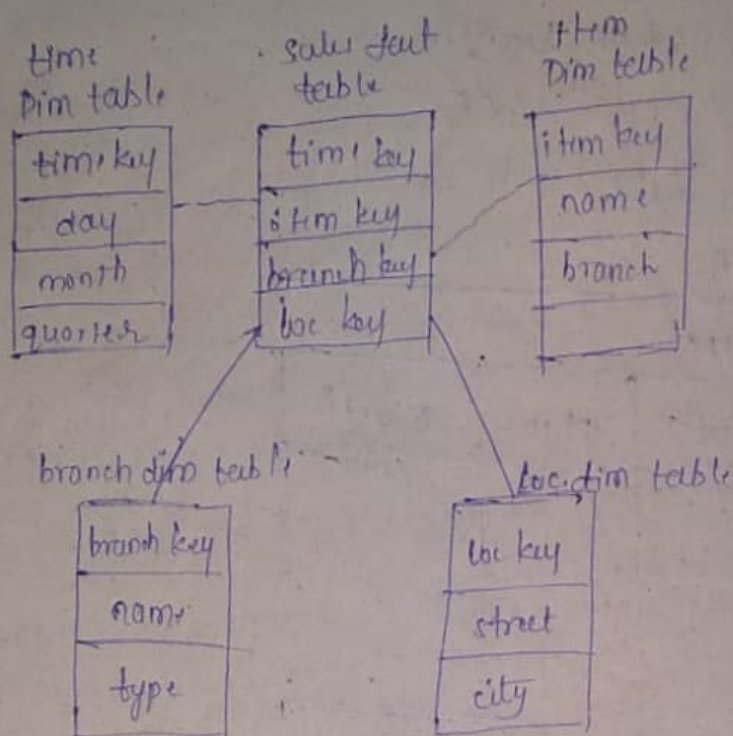 time
Dim table
time key
day
month
quarter
sales fact
table
time key
item key
branch key
loc key
item
Dim table
item key
name
branch
branch dim table
branch key
name
type
Loc. dim table
loc key
street
city